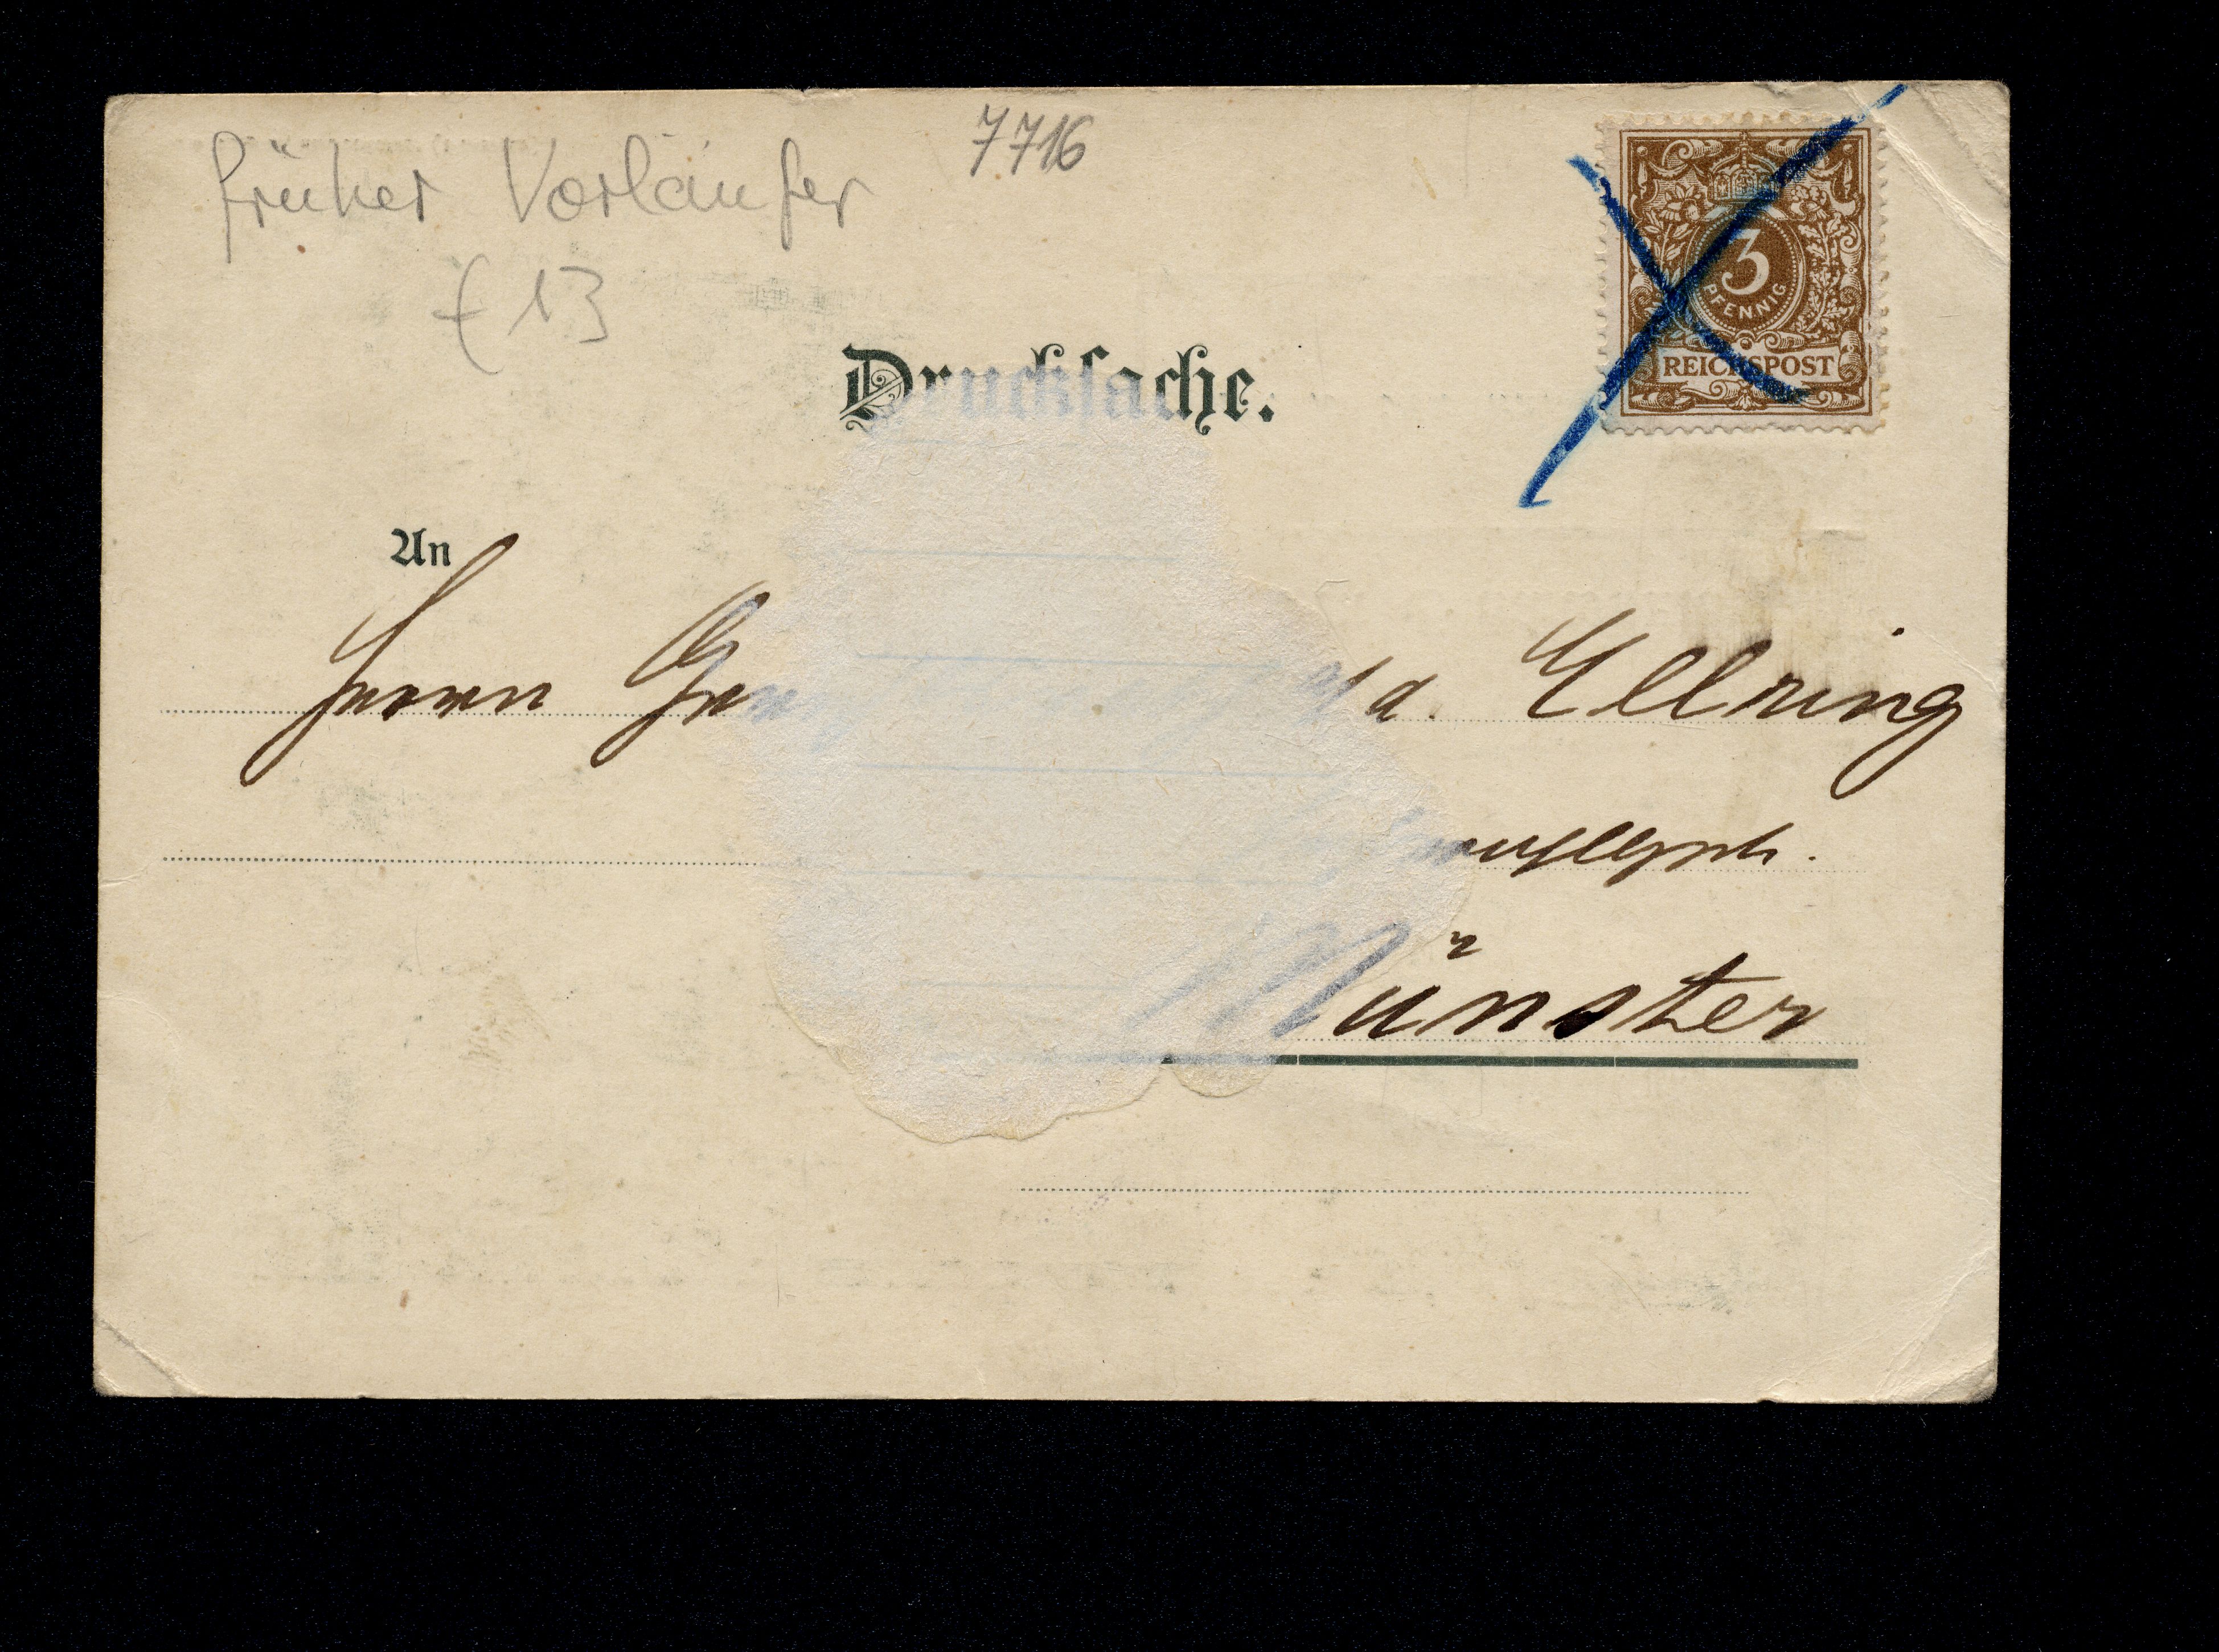 früher Vorläufer
7716
€ 13
3
PFENNIG
REICHSPOST
Drucksache.
An
Herrn
d. Ellring
Münster